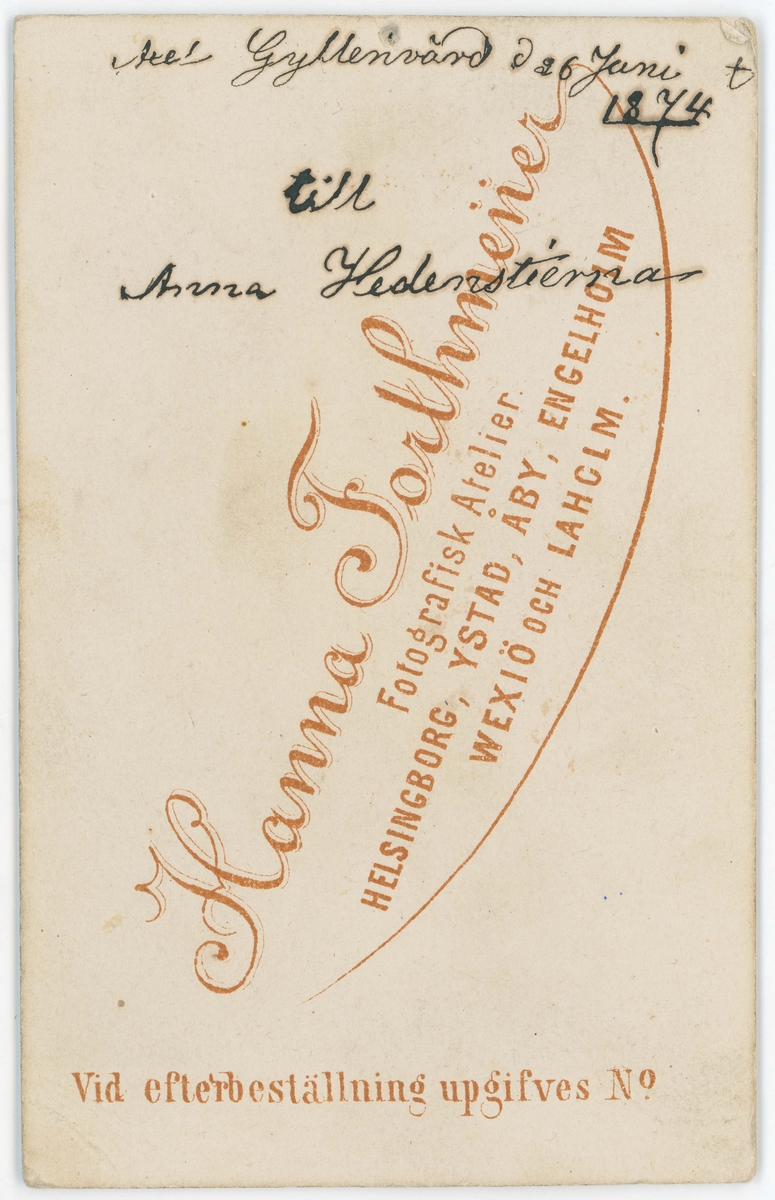 Axel Gyllensvärd d 26 Juni †
1874
till
Anna Hedenstierna
Hanna Forthmeiier
Fotografisk Atelier.
HELSINGBORG, YSTAD, ÅBY, ENGELHOLM
WEXIÖ OCH LAHOLM.
Vid efterbeställning upgifves No